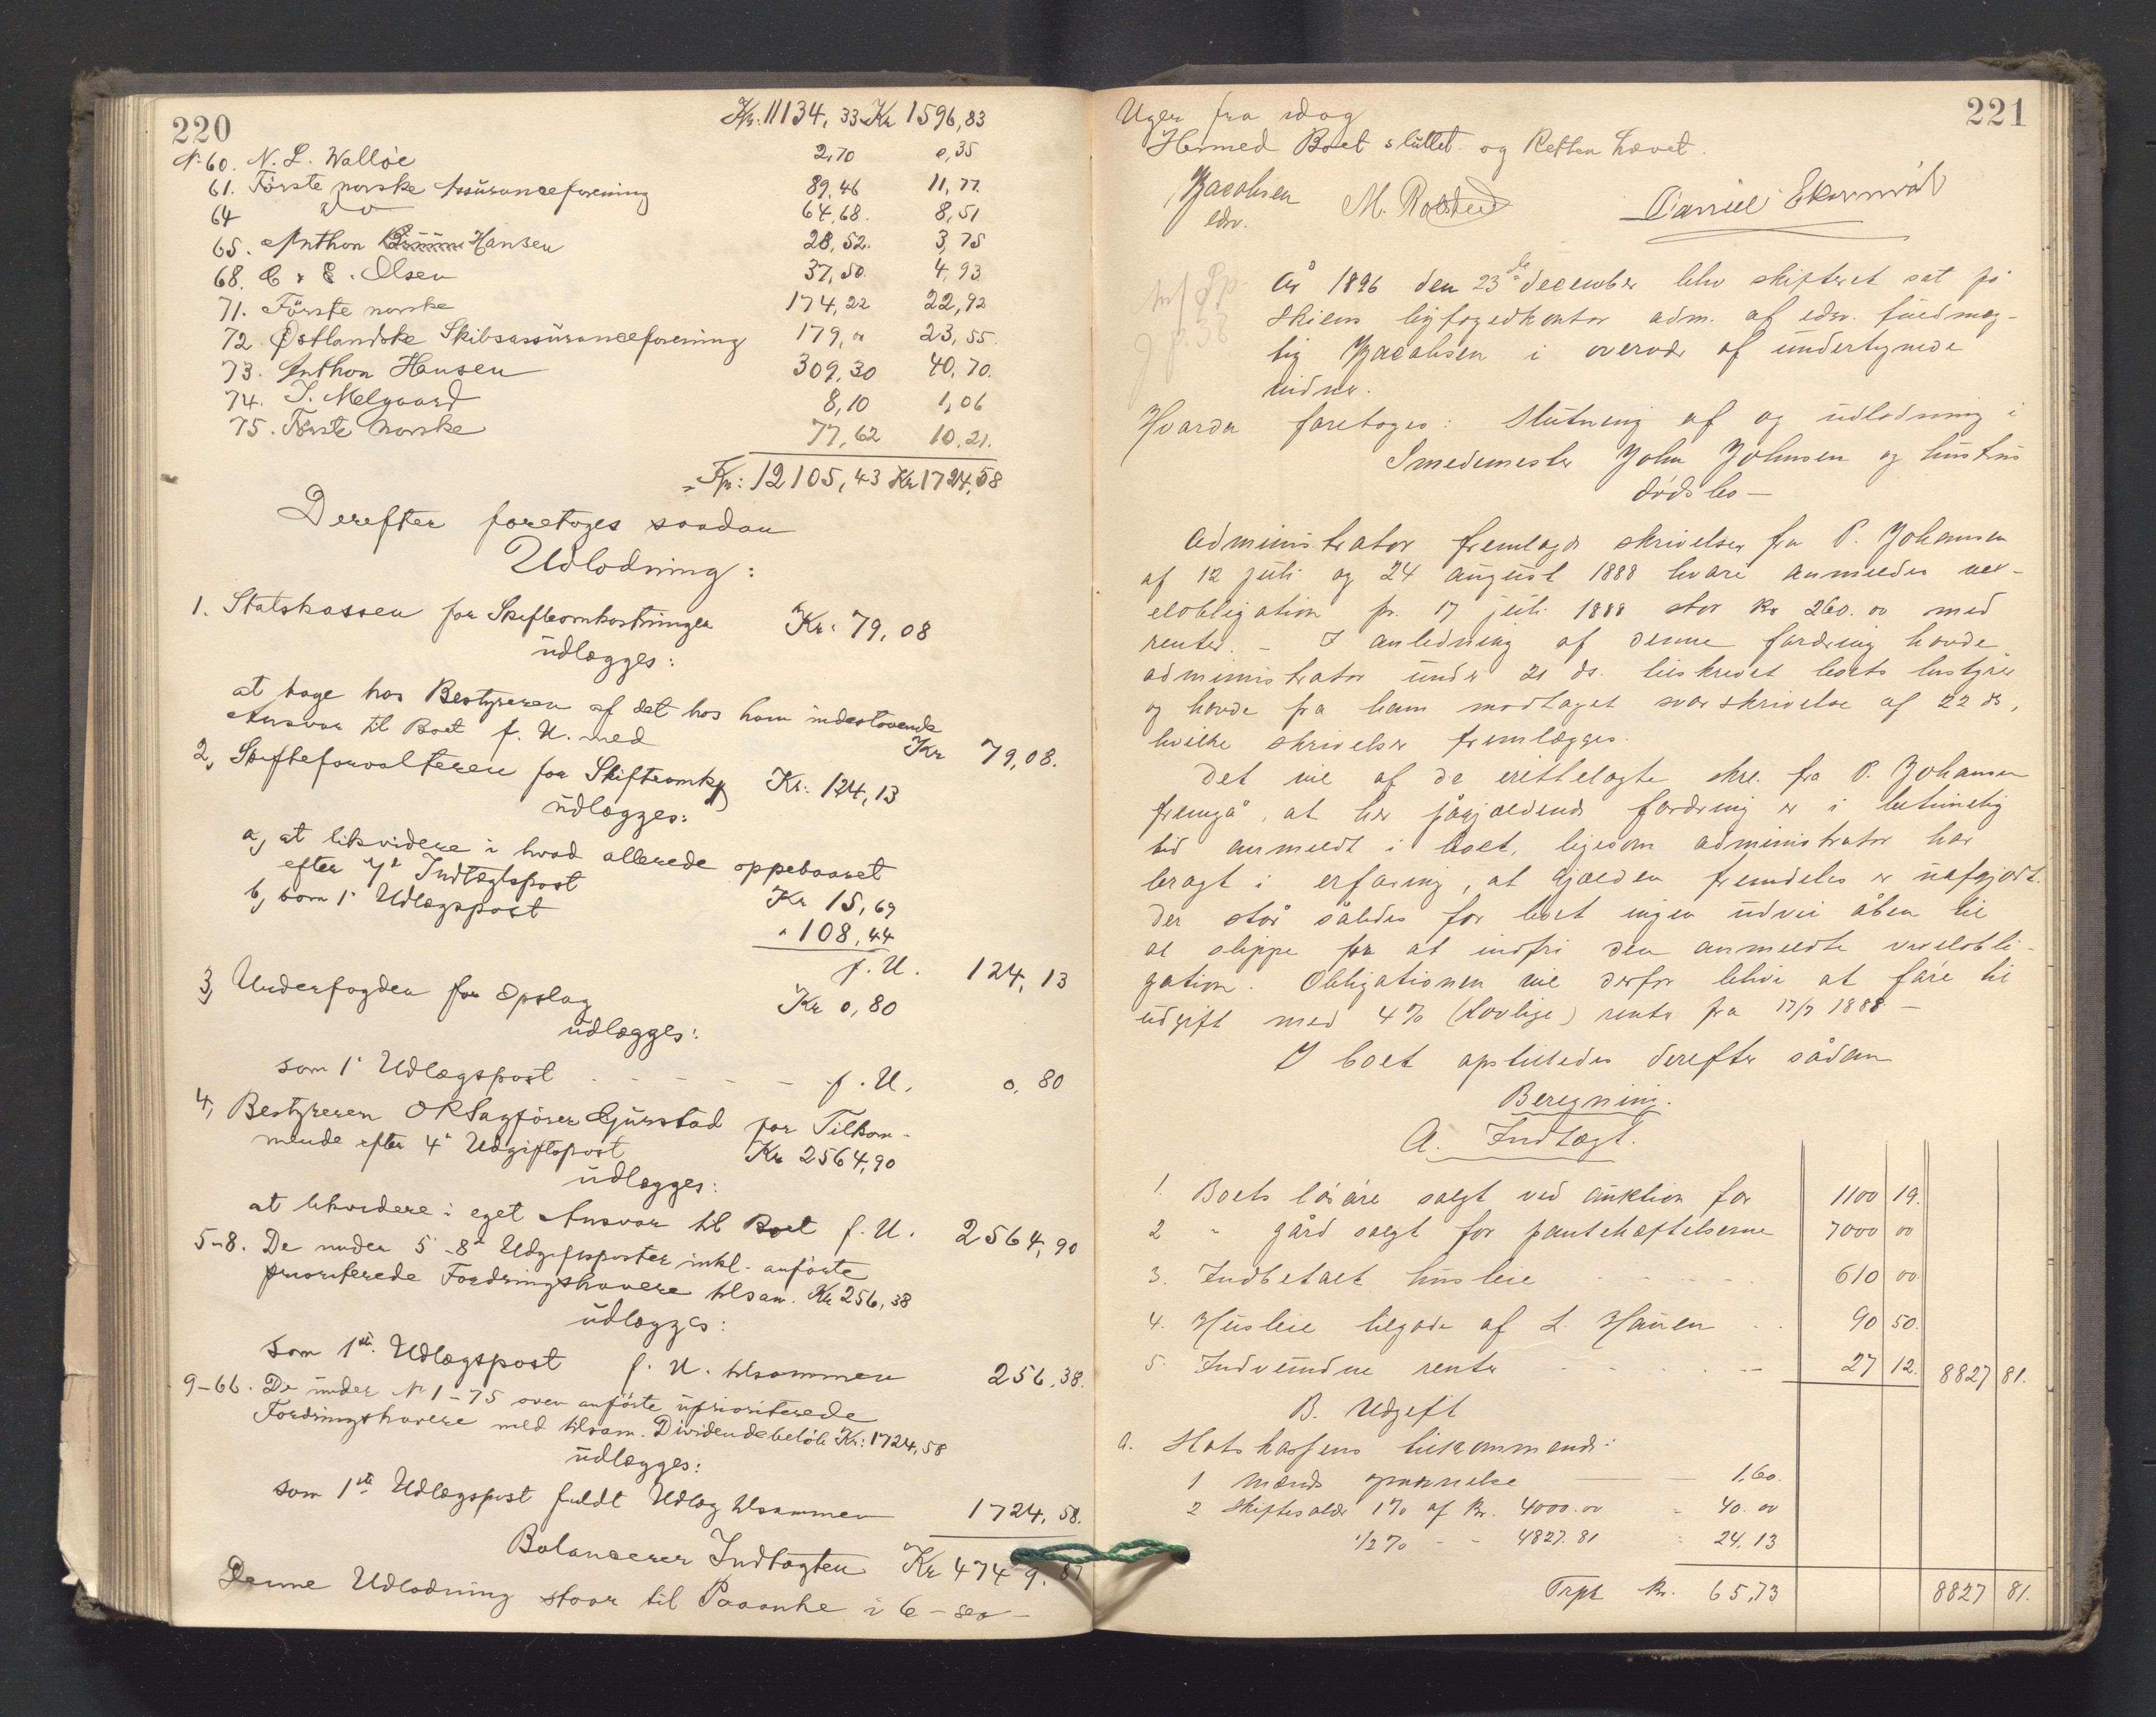 220
Kr. 11134,33 Kr 1596,83
No 60. N. L. Walløe 2,70 0,35
61. Første norske Assuranceforening 89,46 11,77.
64 do 64,68. 8,51
65. Anthon Hansen 28,52. 3,75
68. C & E. Olsen 37,50. 4,93
71. Første norske 174,22 22,92
72. Østlandske Skibsassuranceforening 179,00 23,55.
73. Anthon Hansen 309,30 40,70.
74. I. Melgaard 8,10 1,06
75. Første norske 77,62 10,21.
Kr: 12105,43 Kr 1724,58
Derefter foretoges saadan
Udlodning:
1. Statskassen for Skifteomkostninger Kr: 79,08
udlægges:
at tage hos Bestyreren af det hos ham indestaaende
Ansvar til Boet f. U. med Kr 79,08.
2, Skifteforvalteren for Skifteomkg Kr: 124,13
udlægges:
a, at likvidere i hvad allerede oppebaaret
efter 4de Indtægtspost Kr 15,69
b, som 1' Udlægspost " 108,44
f. U. 124,13
3, Underfogden for Opslag Kr 0,80
udlægges:
som 1' Udlægspost - - - - - f. U. 0,80
4, Bestyreren ORSagfører Gjurstad for Tilkom-
mende efter 4' Udgiftspost Kr 2564,90
udlægges:
at likvidere i eget Ansvar til Boet f. U. 2564,90
5-8. De under 5'-8de Udgiftsposter inkl. anførte
prioriterede Fordringshavere tilsam. Kr 256,38
udlægges:
som 1ste Udlægspost f. U. tilsammen 256,38.
9-66. De under No 1-75 oven anførte uprioriterede
Fordringshavere med tilsam. Dividendebeløb Kr: 1724,58
udlægges:
som 1ste Udlægspost fuldt Udlæg tilsammen 1724,58.
Balancerer Indtægten Kr 4749,87
Denne Udlodning staar til Paaanke i 6 - sex -
221
Uger fra idag
Hermed Boet sluttet og Retten hævet.
Jacobsen M. Daniel Ekornrød
edsv.
År 1896 den 23de december blev skifteret sat på
Skiens byfogedkontor adm. af edsv. fuldmæg-
tig Jacobsen i overvær af undertegnede
vidner.
Hvorda foretoges: Slutning af og udlodning i
Smedemester John Johnsen og hustrus
dødsbo -
Administrator fremlagde skrivelser fra P. Johansen
af 12 juli og 24 august 1888 hvori anmeldes vex-
elobligation pr. 17 juli 1888 stor kr 260.00 med
renter. - I anledning af denne fordring havde
administrator under 21 ds. tilskrevet boets bestyrer
og havde fra ham modtaget svarskrivelse af 22 ds,
hvilke skrivelser fremlægges.
Det vil af de irettelagte skr. fra P. Johansen
fremgå, at her pågjældende fordring er i betimelig
tid anmeldt i boet, ligesom administrator har
bragt i erfaring, at gjælden fremdeles er uafgjort.
Der står således for boet ingen udvei åben til
at slippe for at indfri den anmeldte vexelobli-
gation. Obligationen vil derfor blive at føre til
udgift med 4% (lovlige) rente fra 17/7 1888 -
I boet opstilledes derefter sådan
Beregning.
A. Indtægt.
1. Boets løsøre solgt ved auktion for 1100 19.
2 " gård solgt for pantehæftelserne 7000 00
3. Indbetalt husleie - - - 610 00
4. Husleie tilgode af L. Hansen - - 90 50.
5. Indvundne renter - - - 27 12. 8827 81.
B. Udgift
a. Statskassens tilkommende:
1 mænds opnævnelse 1,60.
2 skiftesalær 1% af kr. 4000.00 = 40.00
1/2% - - 4827.81 = 24,13
Trpt kr. 65,73 8827 81.